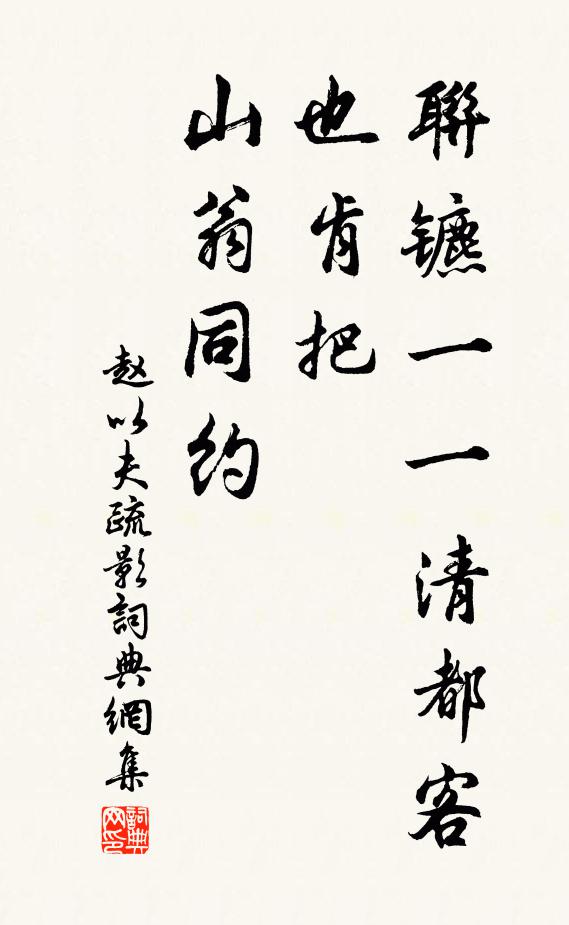 聯镳一一清都客
也肯把
山翁同約
赵以夫疏影詞典網集
詞典网印